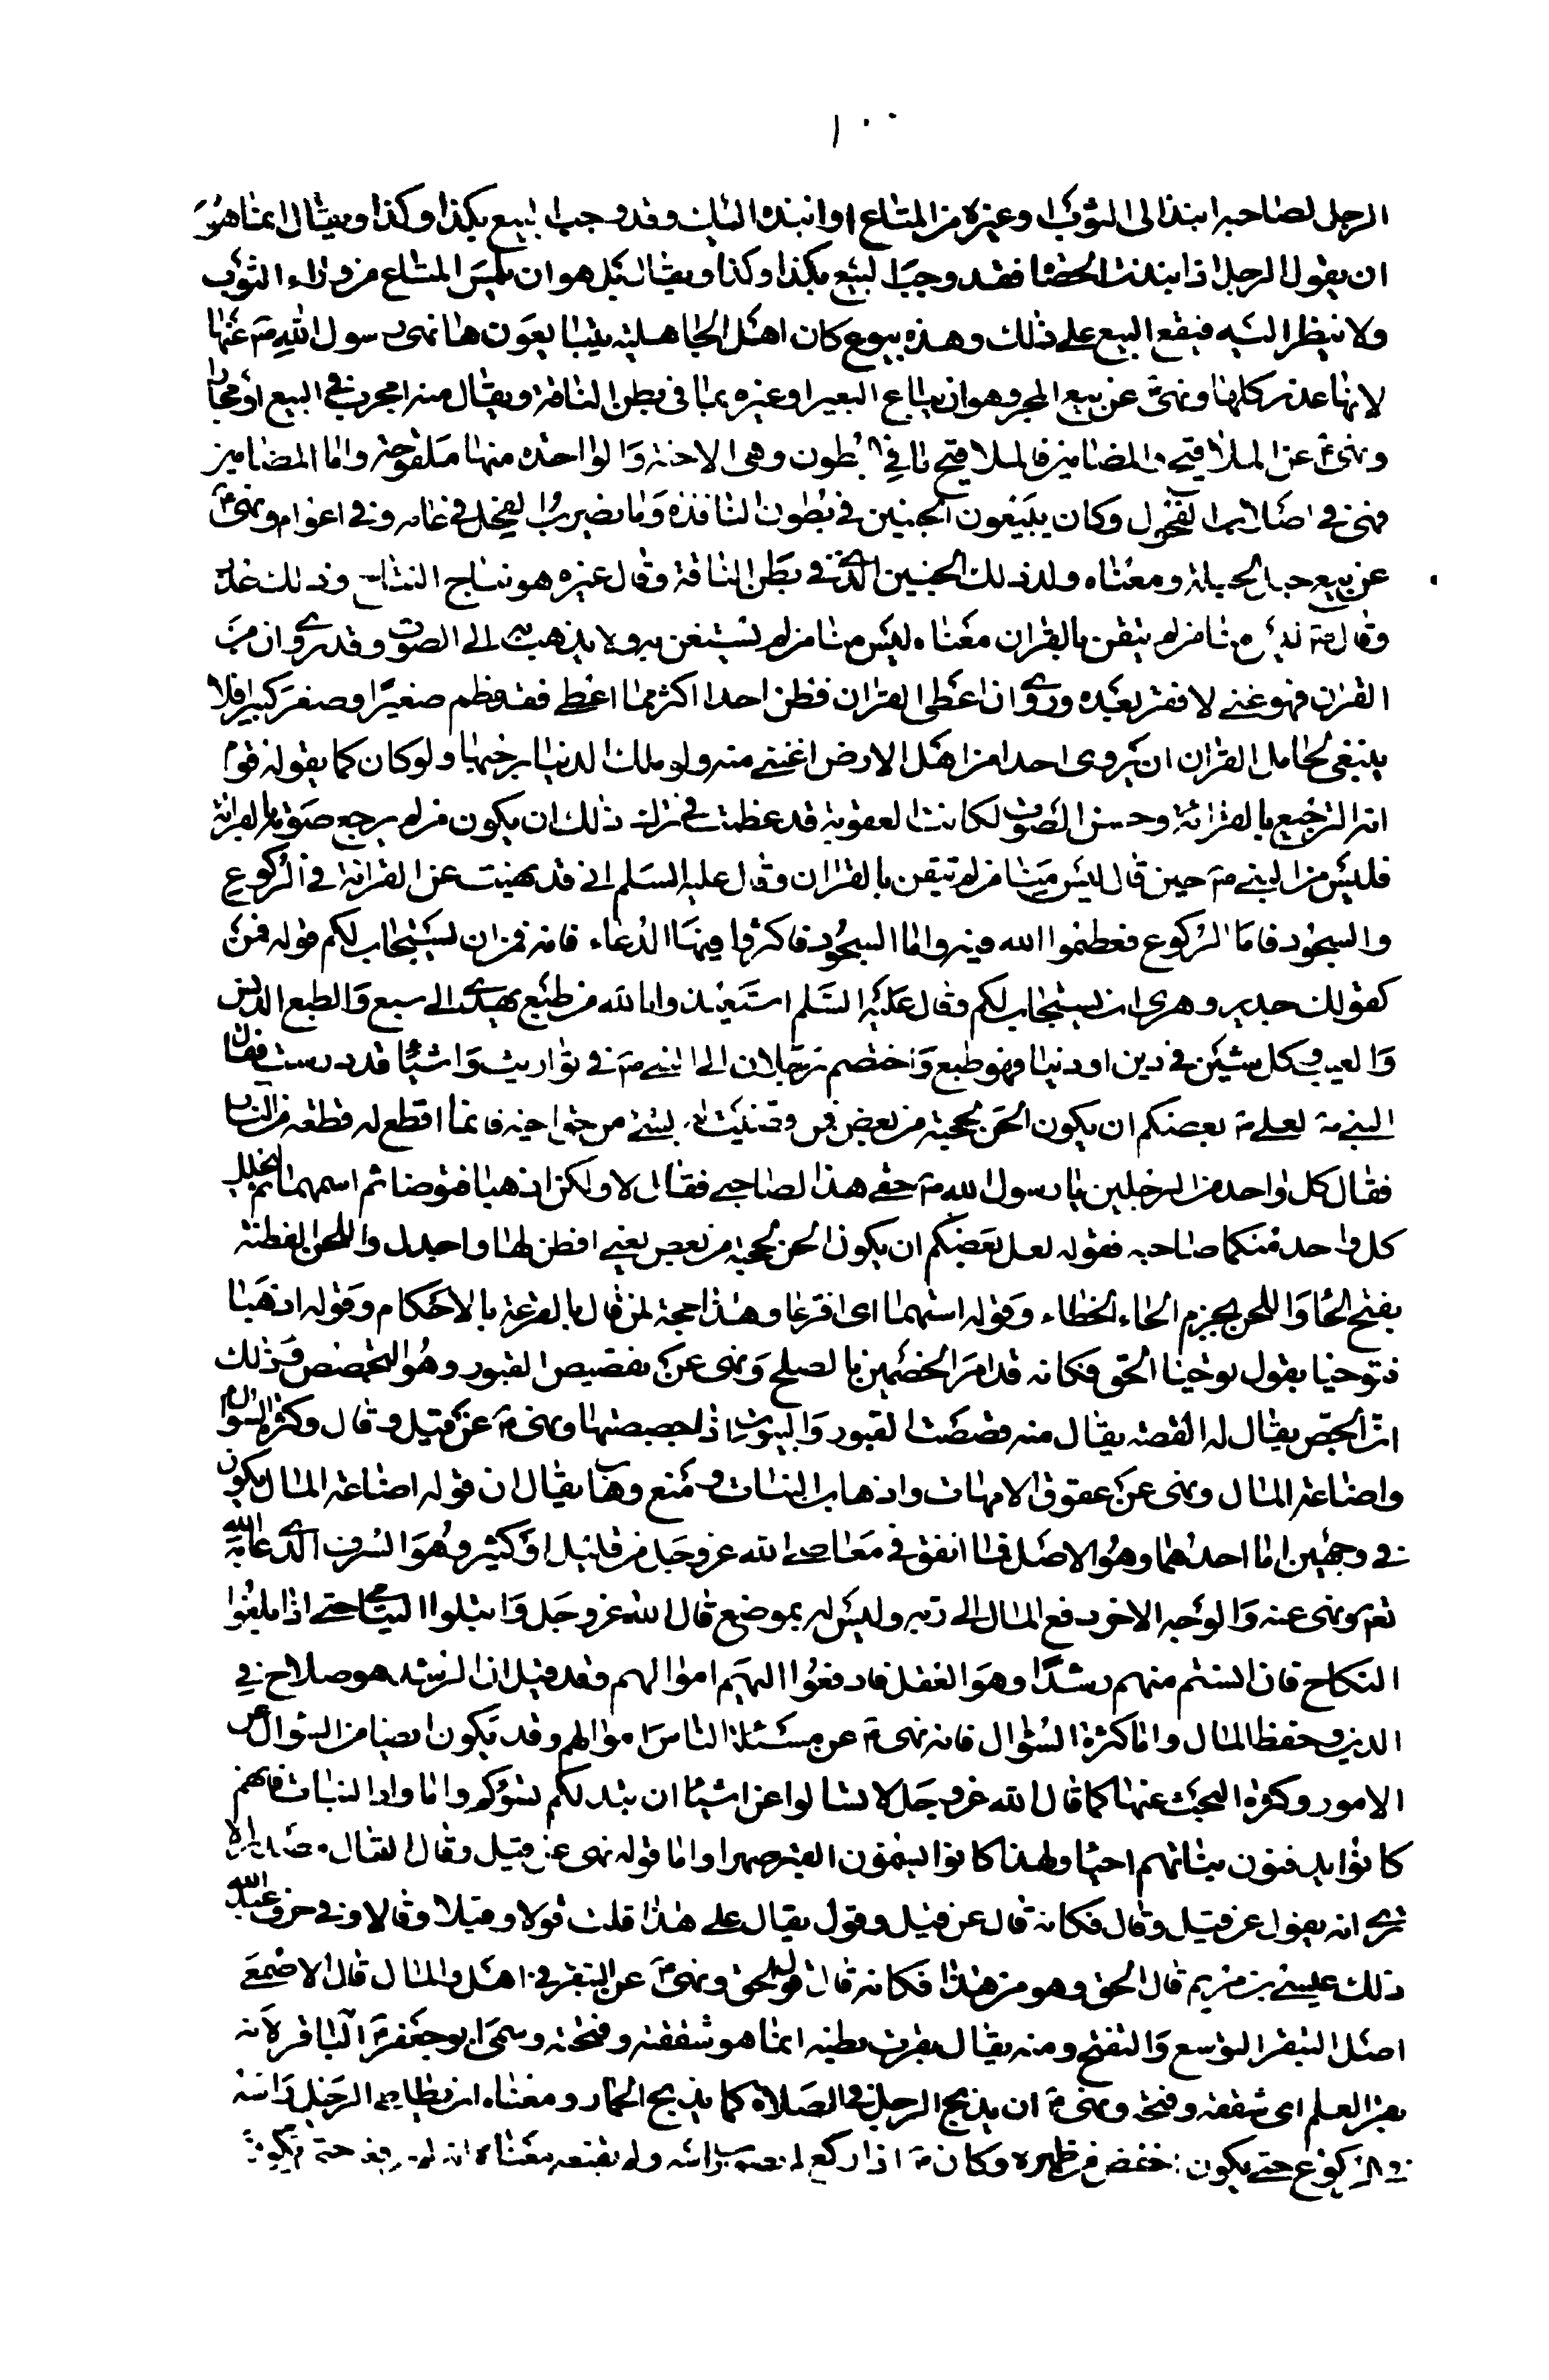 ١٠٠
الرجل لصاحبه انبذ الى الثوب او غيره من المتاع او انبذه اليك وقد وجب البيع بكذا وكذا ويقال انما هو
ان يقول الرجل اذا نبذت الحصا فقد وجب البيع بكذا وكذا ويقال بل هو ان يلمس المتاع من وراء الثوب
ولا ينظر اليه فيقع البيع على ذلك وهذه بيوع كان اهل الجاهلية يتبايعون ها نهى رسول الله ص عنها
لانها غدر كلها ونهى ع عن بيع المجر وهو ان يباع البعير او غيره بما في بطن الناقة ويقال منه امجرت في البيع
ونهى ع عن الملاقيح و المضامين فالملاقيح ما في البطون وهي الاجنة والواحده منها ملقوحة واما المضامين
فهى في اصلاب الفحول وكان يبيعون الجنين في بطون الناقة وما يضرب الفحل في عامه وفي اعوام ونهى ع
عن بيع حبل الحبلة ومعناه ولد ذلك الجنين الذى في بطن الناقة وقال غيره هو نتاج النتاج وذلك غدر
وقال ص ليس منا من لم يتغن بالقران معناه ليس منا من لم يستغن به ولا يذهب به الى الصوت وقد روى ان من
القران فهو غنى لا فقر بعده وروى ان من اعطى القران فظن احدا اكثر مما اعطى فقد عظم صغيرا وصغر كبيرا فلا
ينبغى لحامل القران ان يروى احدا من اهل الارض اغنى منه ولو ملك الدنيا برحبها ولو كان كما يقوله قوم
انه الترجيع بالقرائة وحسن الصوت لكانت العقوبة قد عظمت في ترك ذلك ان يكون من لم يرجع صوته بالقرائة
فليس من النبى ص حين قال ليس منا من لم يتغن بالقران وقال عليه السلم انى قد نهيت عن القرائة في الركوع
والسجود فاما الركوع فعظموا الله فيه واما السجود فاكثروا فيها الدعاء فانه قمن ان يستجاب لكم قوله قمن
كقولك جدير وحرى ان يستجاب لكم وقال عليه السلم استعيذوا بالله من طبع يهدى الى طبع والطبع الدنس
والعيب وكل شين في دين او دنيا فهو طبع واختصم رجلان الى النبى ص في مواريث واشيا قد درست فقال
النبى ص لعل بعضكم ان يكون الحن بحجته من بعض فمن قضيت له بشئ من حق اخيه فانما اقطع له قطعة من النار
فقال كل واحد من الرجلين يا رسول الله ص حقى هذا لصاحبى فقال لا ولكن اذهبا فتوخيا ثم استهما ثم ليحلل
كل واحد منكما صاحبه فقوله لعل بعضكم ان يكون الحن بحجته من بعض يعنى افطن لها واجدل واللحن الفطنة
بفتح الحا واللحن بجزم الحاء الخطاء وقوله استهما اى اقرعا وهذا حجة لمن قال بالقرعة بالاحكام وقوله اذهبا
فتوخيا يقول توخيا الحق فكانه قد امر الخصمين بالصلح ونهى ع عن تقصيص القبور وهو التجصيص وذلك
ان الجص يقال له القصة يقال منه قصصت القبور والبيوت اذا جصصتها ونهى ع عن قيل و قال وكثرة السؤال
واضاعة المال ونهى ع عن عقوق الامهات واد البنات و منع وهات يقال ان قوله اضاعة المال يكون
في وجهين اما احدهما وهو الاصل فما انفق في معاصى الله عز وجل من قليل او كثير وهو السرف الذى عابه الله
تعالى ونهى عنه والوجه الاخر دفع المال الى ربه وليس له بموضع قال الله عز وجل وابتلوا اليتامى حتى اذا بلغوا
النكاح فان انستم منهم رشدا وهو العقل فادفعوا اليهم اموالهم وقد قيل ان الرشد هو صلاح في
الدين وحفظ المال واما كثرة السؤال فانه نهى ع عن مسئلة الناس اموالهم وقد يكون ايضا من السؤال عن
الامور وكثرة البحث عنها كما قال الله عز وجل لا تسالوا عن اشيا ان تبد لكم تسؤكم واما واد البنات فانهم
كانوا يدفنون بناتهم احيا ولهذا كانوا يسمون القبر صهرا واما قوله نهى عن قيل وقال
ترى انه يقول عن قيل وقال فكانه قال عن قيل وقول يقال على هذا قلت قولا وقيلا وقالا وفي حرف عبد الله
ذلك عيسى بن مريم قال الحق وهو من هذا فكانه قال قول الحق ونهى ع عن التبقر في الاهل والمال قال الاصمعى
اصل التبقر التوسع والتفتح ومنه يقال بقرت بطنه انما هو شققته وفتحته وسمى ابو جعفر ع الباقر لانه
بقر العلم اى شققه وفتحه ونهى ع ان يذبح الرجل في الصلاة كما يذبح الحمار ومعناه ان يطاطئ الرجل راسه
في الركوع حتى يكون اخفض من ظهره وكان ع اذا ركع لم يصوب راسه ولم يقنعه معناه انه لم يرفعه حتى يكون